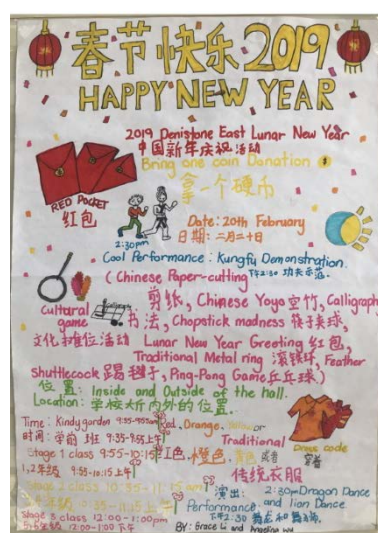 春节快乐2019
HAPPY NEW YEAR
2019 Denistone East Lunar New Year
中国新年庆祝活动
Bring one coin Donation
拿一个硬币
RED POCKET
红包
Date: 20th February
日期: 二月二十日
2:30pm
Cool Performance: Kungfu Demonstration.
下午2:30 功夫示范.
(Chinese Paper-cutting
剪纸, Chinese Yoyo 空竹, Calligraphy
Calligraphy
Cultural game
书法, Chopstick madness 筷子夹球,
文化摊位活动 Lunar New Year Greeting 红包,
Traditional Metal ring 滚铁环, Feather
shuttlecock 踢毽子, Ping-Pong Game 乒乓球)
位置: Inside and Outside of the hall.
Location: 学校大厅内外的位置.
Time: Kindy garden 9:35-9:55am
时间: 学前班 9:35-9:55上午
Stage 1 class 9:55-10:15
1,2年级 9:55-10:15上午
Stage 2 class 10:35-11:15 am
年级 10:35-11:15上午
Stage 3 class 12:00-1:00pm
5,6年级 12:00-1:00下午
Red, Orange, Yellow or
Traditional
Dress code
红色, 橙色, 黄色 或者
传统衣服
演出: 2:30pm Dragon Dance
Performance: and lion Dance
下午2:30 舞龙和舞狮.
BY: Grace Li and Angelina Wu